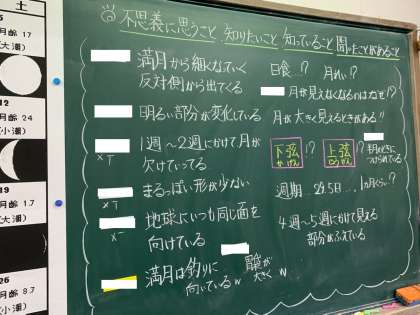 土
月齢 17
(大潮)
12
月齢 24
(小潮)
19
月齢 1.7
(大潮)
26
月齢 8.7
(小潮)
不思議に思うこと 知りたいこと 知っていること 聞いたことがあること
満月から細くなていく
反対側から出てくる
明るい部分が変化している
1週〜2週にかけて月が
欠けていってる
まるっぽい形が少ない
地球にいつも同じ面を
向けている
満月は釣りに
向いているw
日食…!?
月れい!?
月が見えなくなるのはなぜ!?
月が大きく見えるときがある!!
下弦 かげん !?
上弦 じょうげん !?
つけられている
周期 29.5日… 1か月くらい…!?
4週〜5週にかけて見える
部分がふえている
大きく w